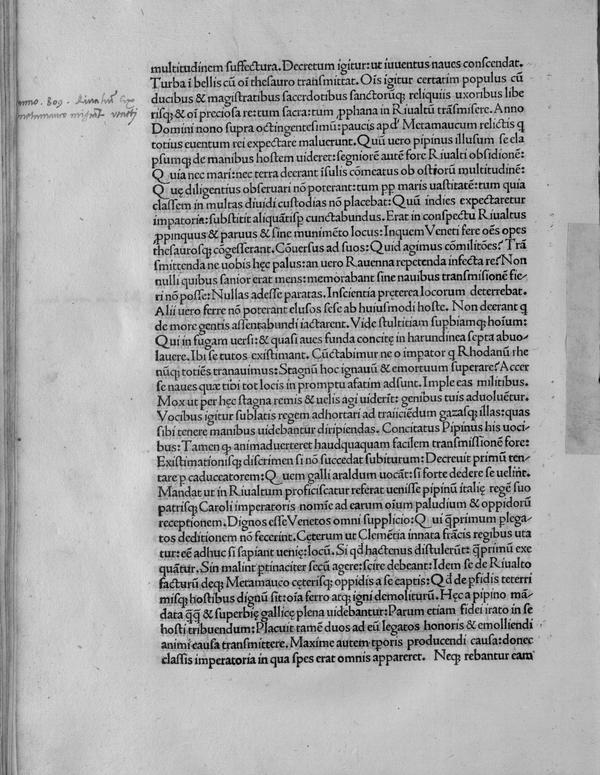 multitudinem suffectura. Decretum igitur: ut iuuentus naues conscendat.
Turba ī bellis cū oī thesauro transmittat. Oīs igitur certatim populus cū
ducibus & magistratibus sacerdotibus sanctorūq; reliquiis uxoribus libe
risq; & oī preciosa re: tum sacra: tum ꝓphana in Riualtū trāsmisere. Anno
Domini nono supra octingentesimū: paucis apd' Metamaucum relictis q
totius euentum rei expectare maluerunt. Quū uero pipinus illusum se ela
psumq; de manibus hostem uideret: segniorē autē fore Riualti obsidionē:
Quia nec mari: nec terra decrant īsulis cōmeatus ob ostiorū multitudinē:
Quę diligentius obseruari nō poterant: tum ꝓp maris uastitatē: tum quia
classem in multas diuidi custodias nō placebat: Quū indies expectaretur
impatoria: substitit aliquātisp cunctabundus. Erat in conspectu Riualtus
ꝓpinquus & paruus & sine munimēto locus: Inquem Veneti fere oēs opes
thesaurosq; cōgesserant. Cōuersus ad suos: Quid agimus cōmilitōes? Trā
smittenda ne uobis hęc palus: an uero Rauenna repetenda infecta re? Non
nulli quibus sanior erat mens: memorabant sine nauibus transmisionē fie-
ri nō posse: Nullas adesse paratas. Inscientia preterea locorum deterrebat.
Alii uero ferre nō poterant elusos sese ab huiusmodi hoste. Non deerant q
de more gentis assentabundi iactarent. Vide stultitiam supbiamq; hoīum:
Qui in fugam uersi: & quasi aues funda concite in harundinea septa abuo-
lauere. Ibi se tutos existimant. Cūctabimur ne o impator q Rhodanū rhe
nūq; totiēs tranauimus: Stagnū hoc ignauū & emortuum superare? Accer
se naues quæ tibi tot locis in promptu afatim adsunt. Imple eas militibus.
Mox ut per hęc stagna remis & uelis agi uiderīt: genibus tuis aduoluētur.
Vocibus igitur sublatis regem adhortari ad traiiciēdum gazasq; illas: quas
sibi tenere manibus uidebantur diripiendas. Concitatus Pipinus his uoci-
bus: Tamen q animaduerteret haudquaquam facilem transmissionē fore:
Existimationisq; discrimen si nō succedat subiturum: Decreuit primū ten-
tare p caduceatorem: Quem galli araldum uocāt: si forte dedere se uelint.
Mandat ut in Riualtum proficiscatur referat uenisse pipinū italię regē suo
patrisq; Caroli imperatoris nomīe ad earum oīum paludium & oppidorū
receptionem. Dignos esse Venetos omni supplicio: Qui q̄primum plega-
tos deditionem nō fecerint. Ceterum ut Clemētia innata frācis regibus uta
tur: eē adhuc si sapiant uenię: locū. Si qd hactenus distulerūt: q̄primū exe
quātur. Sin malint ptinaciter secū agere: scire debeant: Idem se de Riualto
facturū deq; Metamauco ceterisq; oppidis a se captis: Qd de pfidis teterri
misq; hostibus dignū sit: oīa ferro atq; igni demoliturū. Hęc a pipino mā-
data q̄q & superbię gallicę plena uidebantur: Parum etiam fidei irato in se
hosti tribuendum: Placuit tamē duos ad eū legatos honoris & emolliendi
animi causa transmittere. Maxime autem tporis producendi causa: donec
classis imperatoria in qua spes erat omnis appareret. Neq; rebantur eam